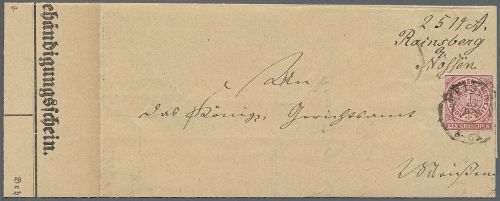 ehändigungsschein.
2511 A.
Rainsberg
Nossen
An
das Königl. Gerichtsamt
Meißen
EIN GROSCHEN